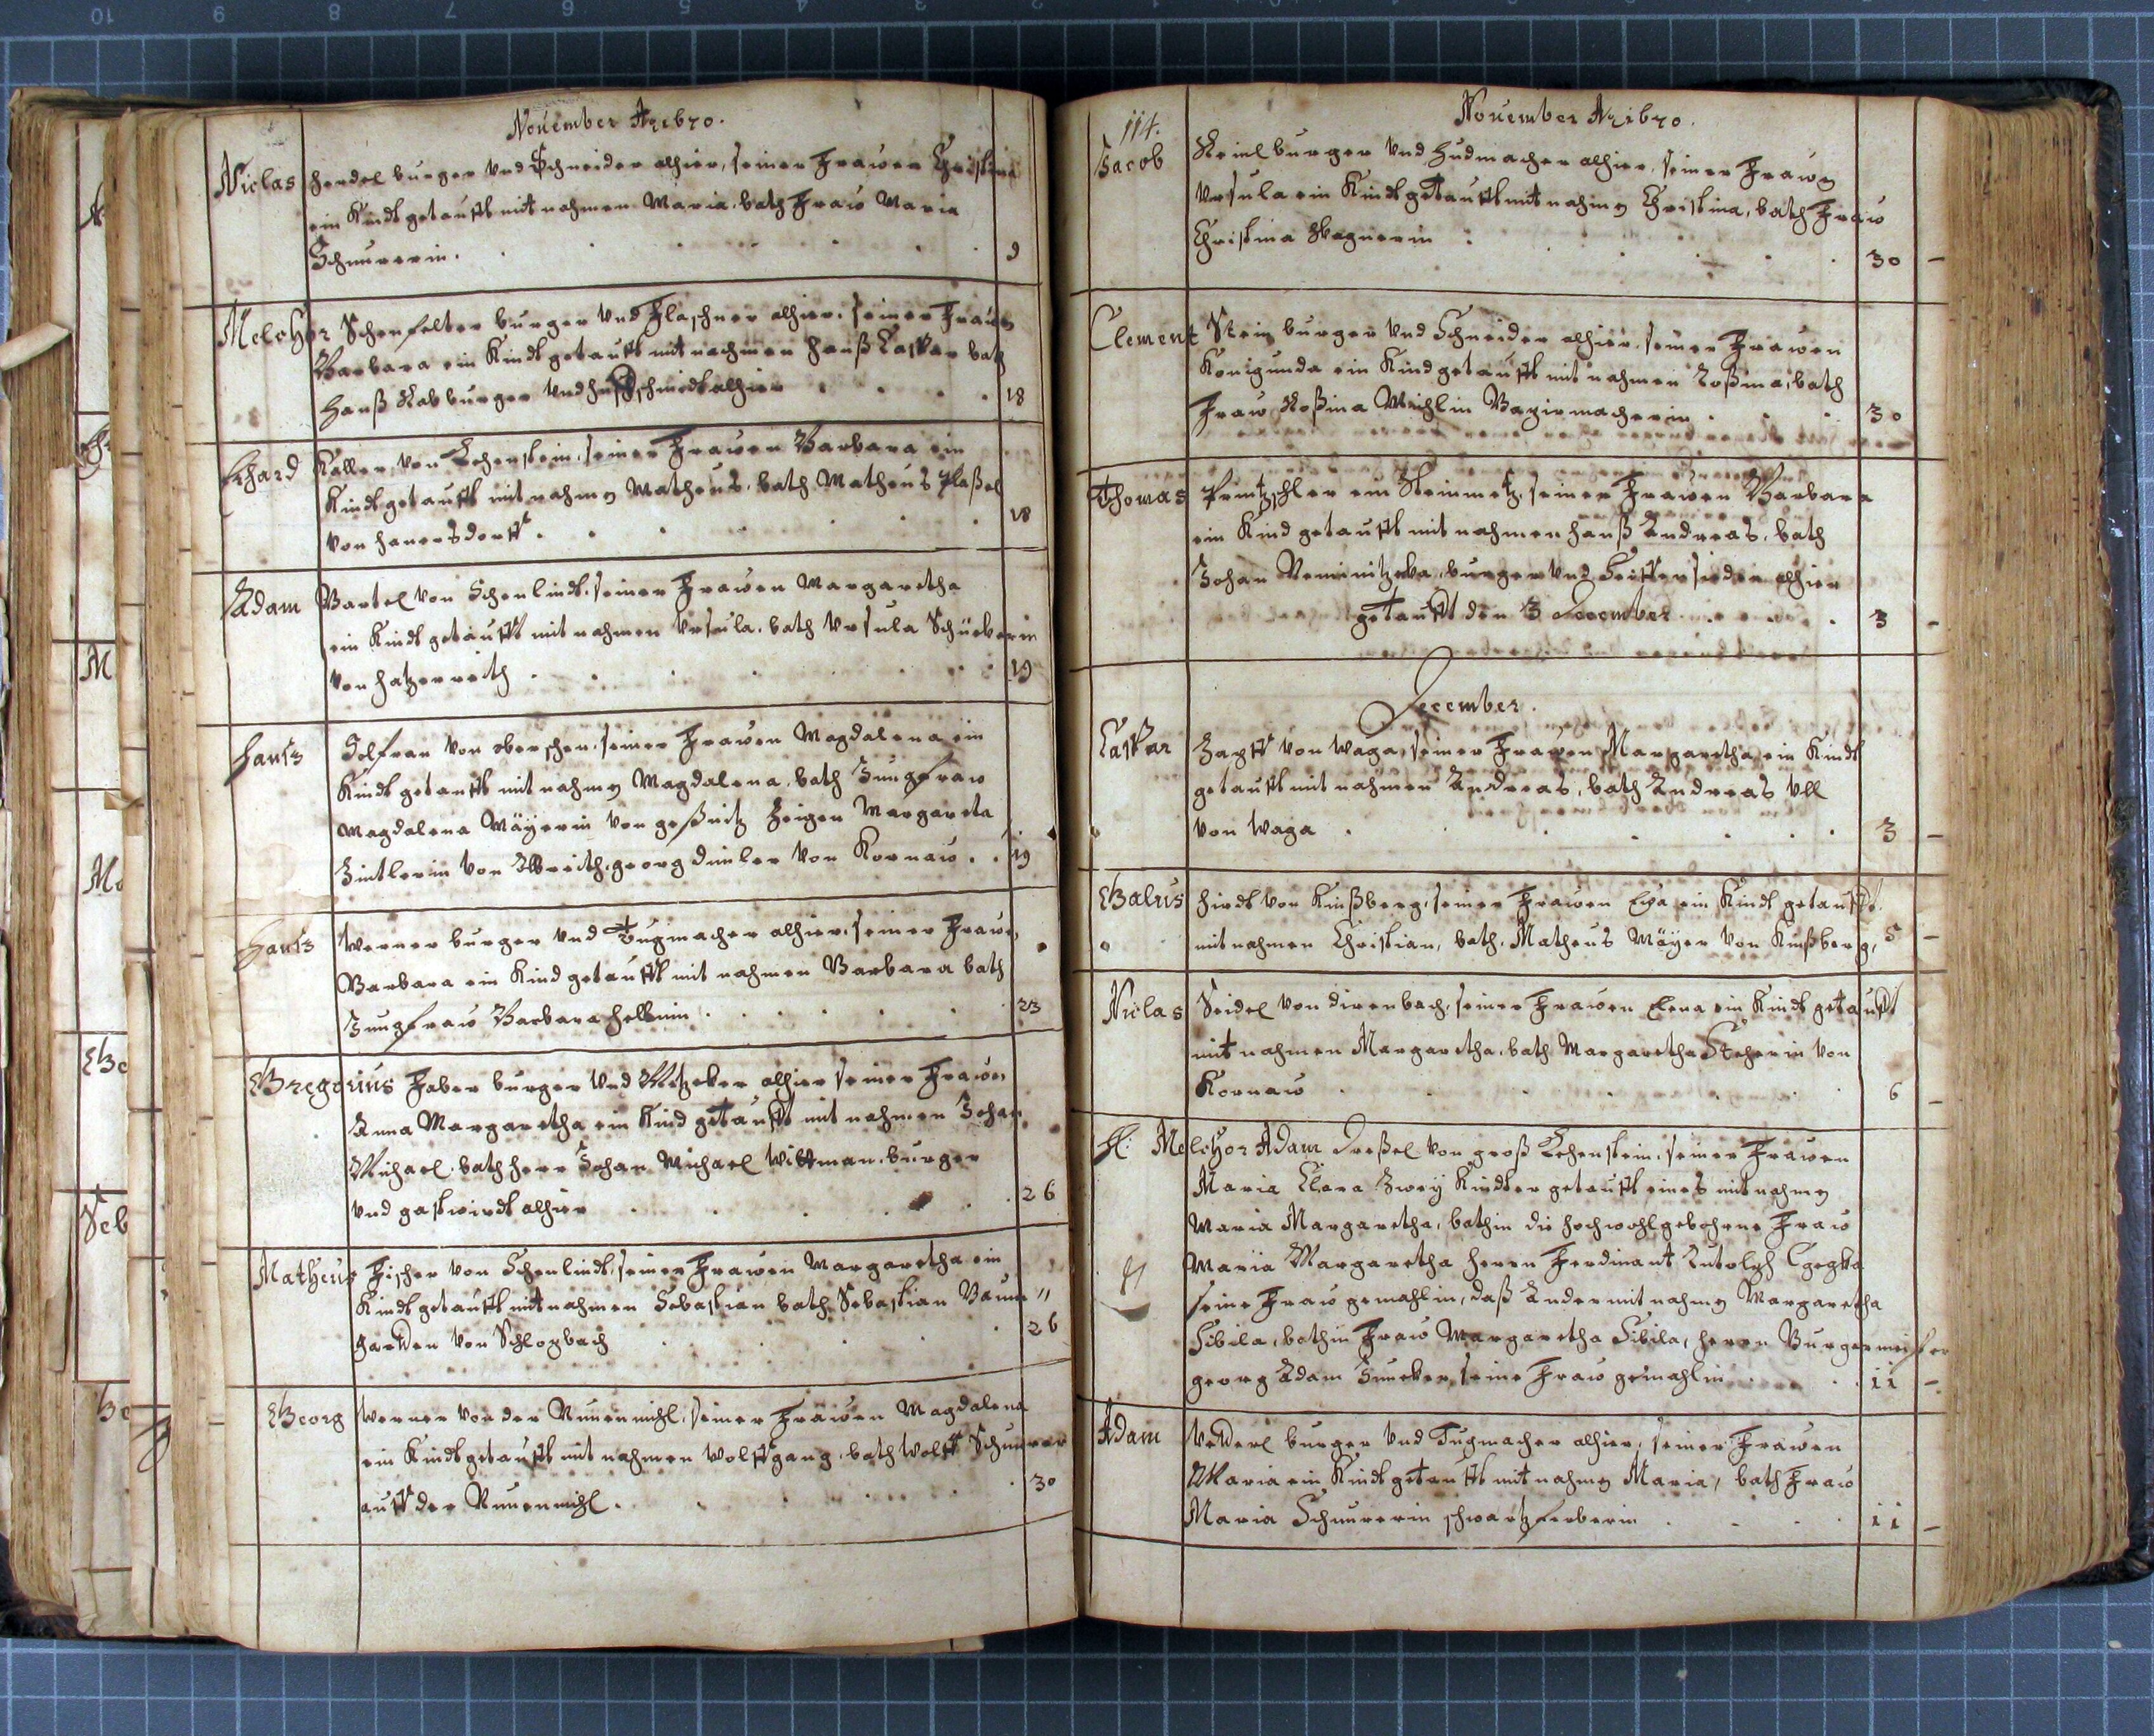 November A° 1670.
Niclas Hendel burger vnd Schneider alhier, seiner Frawen Christina
ein Kindt getaufft mit nahmen Maria, bath Fraw Maria
Schnurerin. 9
Melchor Schenfelter burger vnd Flaschner alhier, seiner Frawen
Barbara ein Kindt getaufft mit nachmen Hanß Caspar bath
Hanß Rab burger vnd Hufschmidt alhier 18
Erhard Kaller von Lohenstein, seiner Frawen Barbara ein
Kindt getaufft mit nahmen Matheus, bath Matheus Plaßel
von Hanersdorff. 18
Adam Bartel von Schenlindt, seiner Frawen Margaretha
ein Kindt getaufft mit nahmen Vrsula, bath Vrsula Schückerin
von Hatzenreith. 19
Hanß von seiner Frawen Magdalena ein
Kindt getaufft mit nahmen Magdalena, bath Jungfraw
Magdalena Mäyerin von geßnitz Zeigen Margareta
Zintlerin von Albreith, georg von Kornaw. 19
Hanß Werner burger vnd Tugmacher alhier, seiner Frawen
Barbara ein Kind getaufft mit nahmen Barbara bath
Jungfraw Barbara 23
Gregorius Faber burger vnd Metzcker alhier seiner Frawen
Anna Margaretha ein Kind getaufft mit nahmen Johan
Michael, bath herr Johan Michael Wittman, burger
vnd gastwirdt alhier 26
Matheus Fischer von Schenlindt, seiner Frawen Margaretha ein
Kindt getaufft mit nahmen Sebastian bath Sebastian Baum„
garten von Schlopbach 26
Georg Werner von der Nunenmihl, seiner Frawen Magdalena
ein Kindt getaufft mit nahmen Wolffgang, bath Wolff Schnurer
auff der Nunenmihl. 30
114. November A° 1670.
Jacob burger vnd Hudmacher alhier, seiner Frawen
Vrsula ein Kindt getaufft mit nahmen Christina, bath Fraw
Christina Wagnerin 30
Clement Stein burger vnd Schneider alhier, seiner Frawen
Konigunda ein Kind getaufft mit nahmen Roßina, bath
Fraw Roßina Michlin Bapirmacherin. 30
Thomas ein Steinmetz, seiner Frawen Barbara
ein Kind getaufft mit nahmen Hanß Andreas, bath
Johan burger vnd Seiffensieder alhier
getaufft den 3 December 3
December.
Caspar Zapff von Waga, seiner Frawen Margaretha ein Kindt
getaufft mit nahmen Andreas, bath Andreas Ull
von Waga 3
Galus Hirdt von Kinßberg, seiner Frawen Eva ein Kindt getaufft
mit nahmen Christian, bath Matheus Mäyer von Kinßberg, 5
Niclas Seidel von direnbach, seiner Frawen Elena ein Kindt getaufft
mit nahmen Margaretha, bath Margaretha von
Kornaw 6
H: Melchor Adam Droßel von groß Lohenstein, seiner Frawen
Maria Clara Zwey Kinder getaufft eines mit nahmen
Maria Margaretha, bathin die hochwohlgebohrne Fraw
Maria Margaretha herrn Ferdinant
seine Fraw gemahlin, daß Ander mit nahmen Margaretha
Sibila, bathin Fraw Margaretha Sibila, herrn Burgermeister
georg Adam Juncker seine Fraw gemahlin 11
Adam burger vnd Tugmacher alhier, seiner Frawen
Maria ein Kindt getaufft mit nahmen Maria, bath Fraw
Maria Schnurerin schwartzferberin 11